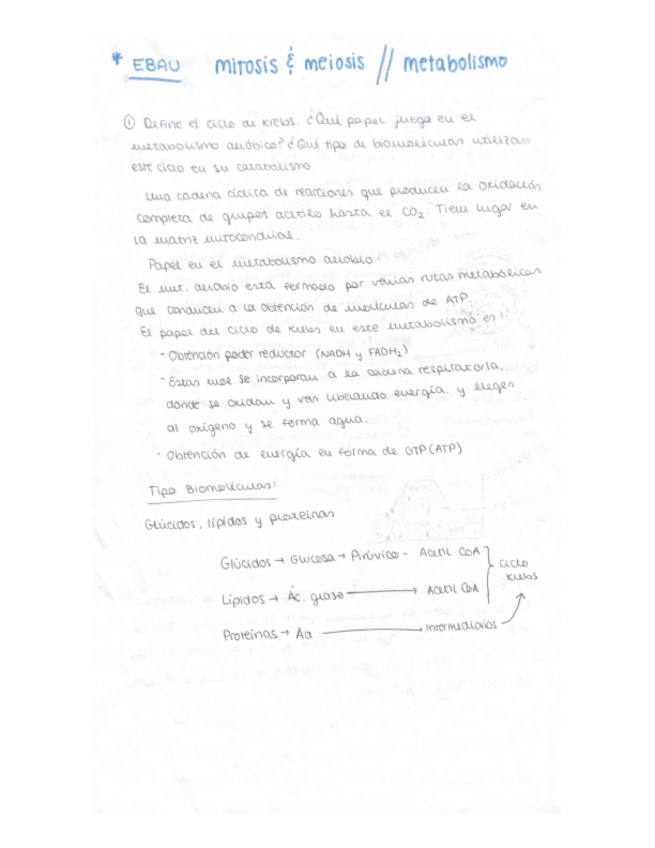 * EBAU mitosis & meiosis // metabolismo
① Define el ciclo de Krebs. ¿Qué papel juega en el
metabolismo aeróbico? ¿Qué tipo de biomoléculas utiliza
este ciclo en su catabolismo
Una cadena cíclica de reacciones que producen la oxidación
completa de grupos acetilo hasta el CO₂. Tiene lugar en
la matriz mitocondrial.
Papel en el metabolismo aerobio.
El met. aerobio está formado por varias rutas metabólicas
que conducen a la obtención de moléculas de ATP.
El papel del ciclo de Krebs en este metabolismo es:
- Obtención poder reductor (NADH y FADH₂)
- Estas mol. se incorporan a la cadena respiratoria,
donde se oxidan y van liberando energía, y llegan
al oxígeno y se forma agua.
- Obtención de energía en forma de GTP (ATP)
Tipo Biomoléculas:
Glúcidos, lípidos y proteínas
Glúcidos → Glucosa → Pirúvico - Acetil CoA
Ciclo
Krebs
Lípidos → Ác. graso → Acetil CoA
Proteínas → Aa → Intermediarios